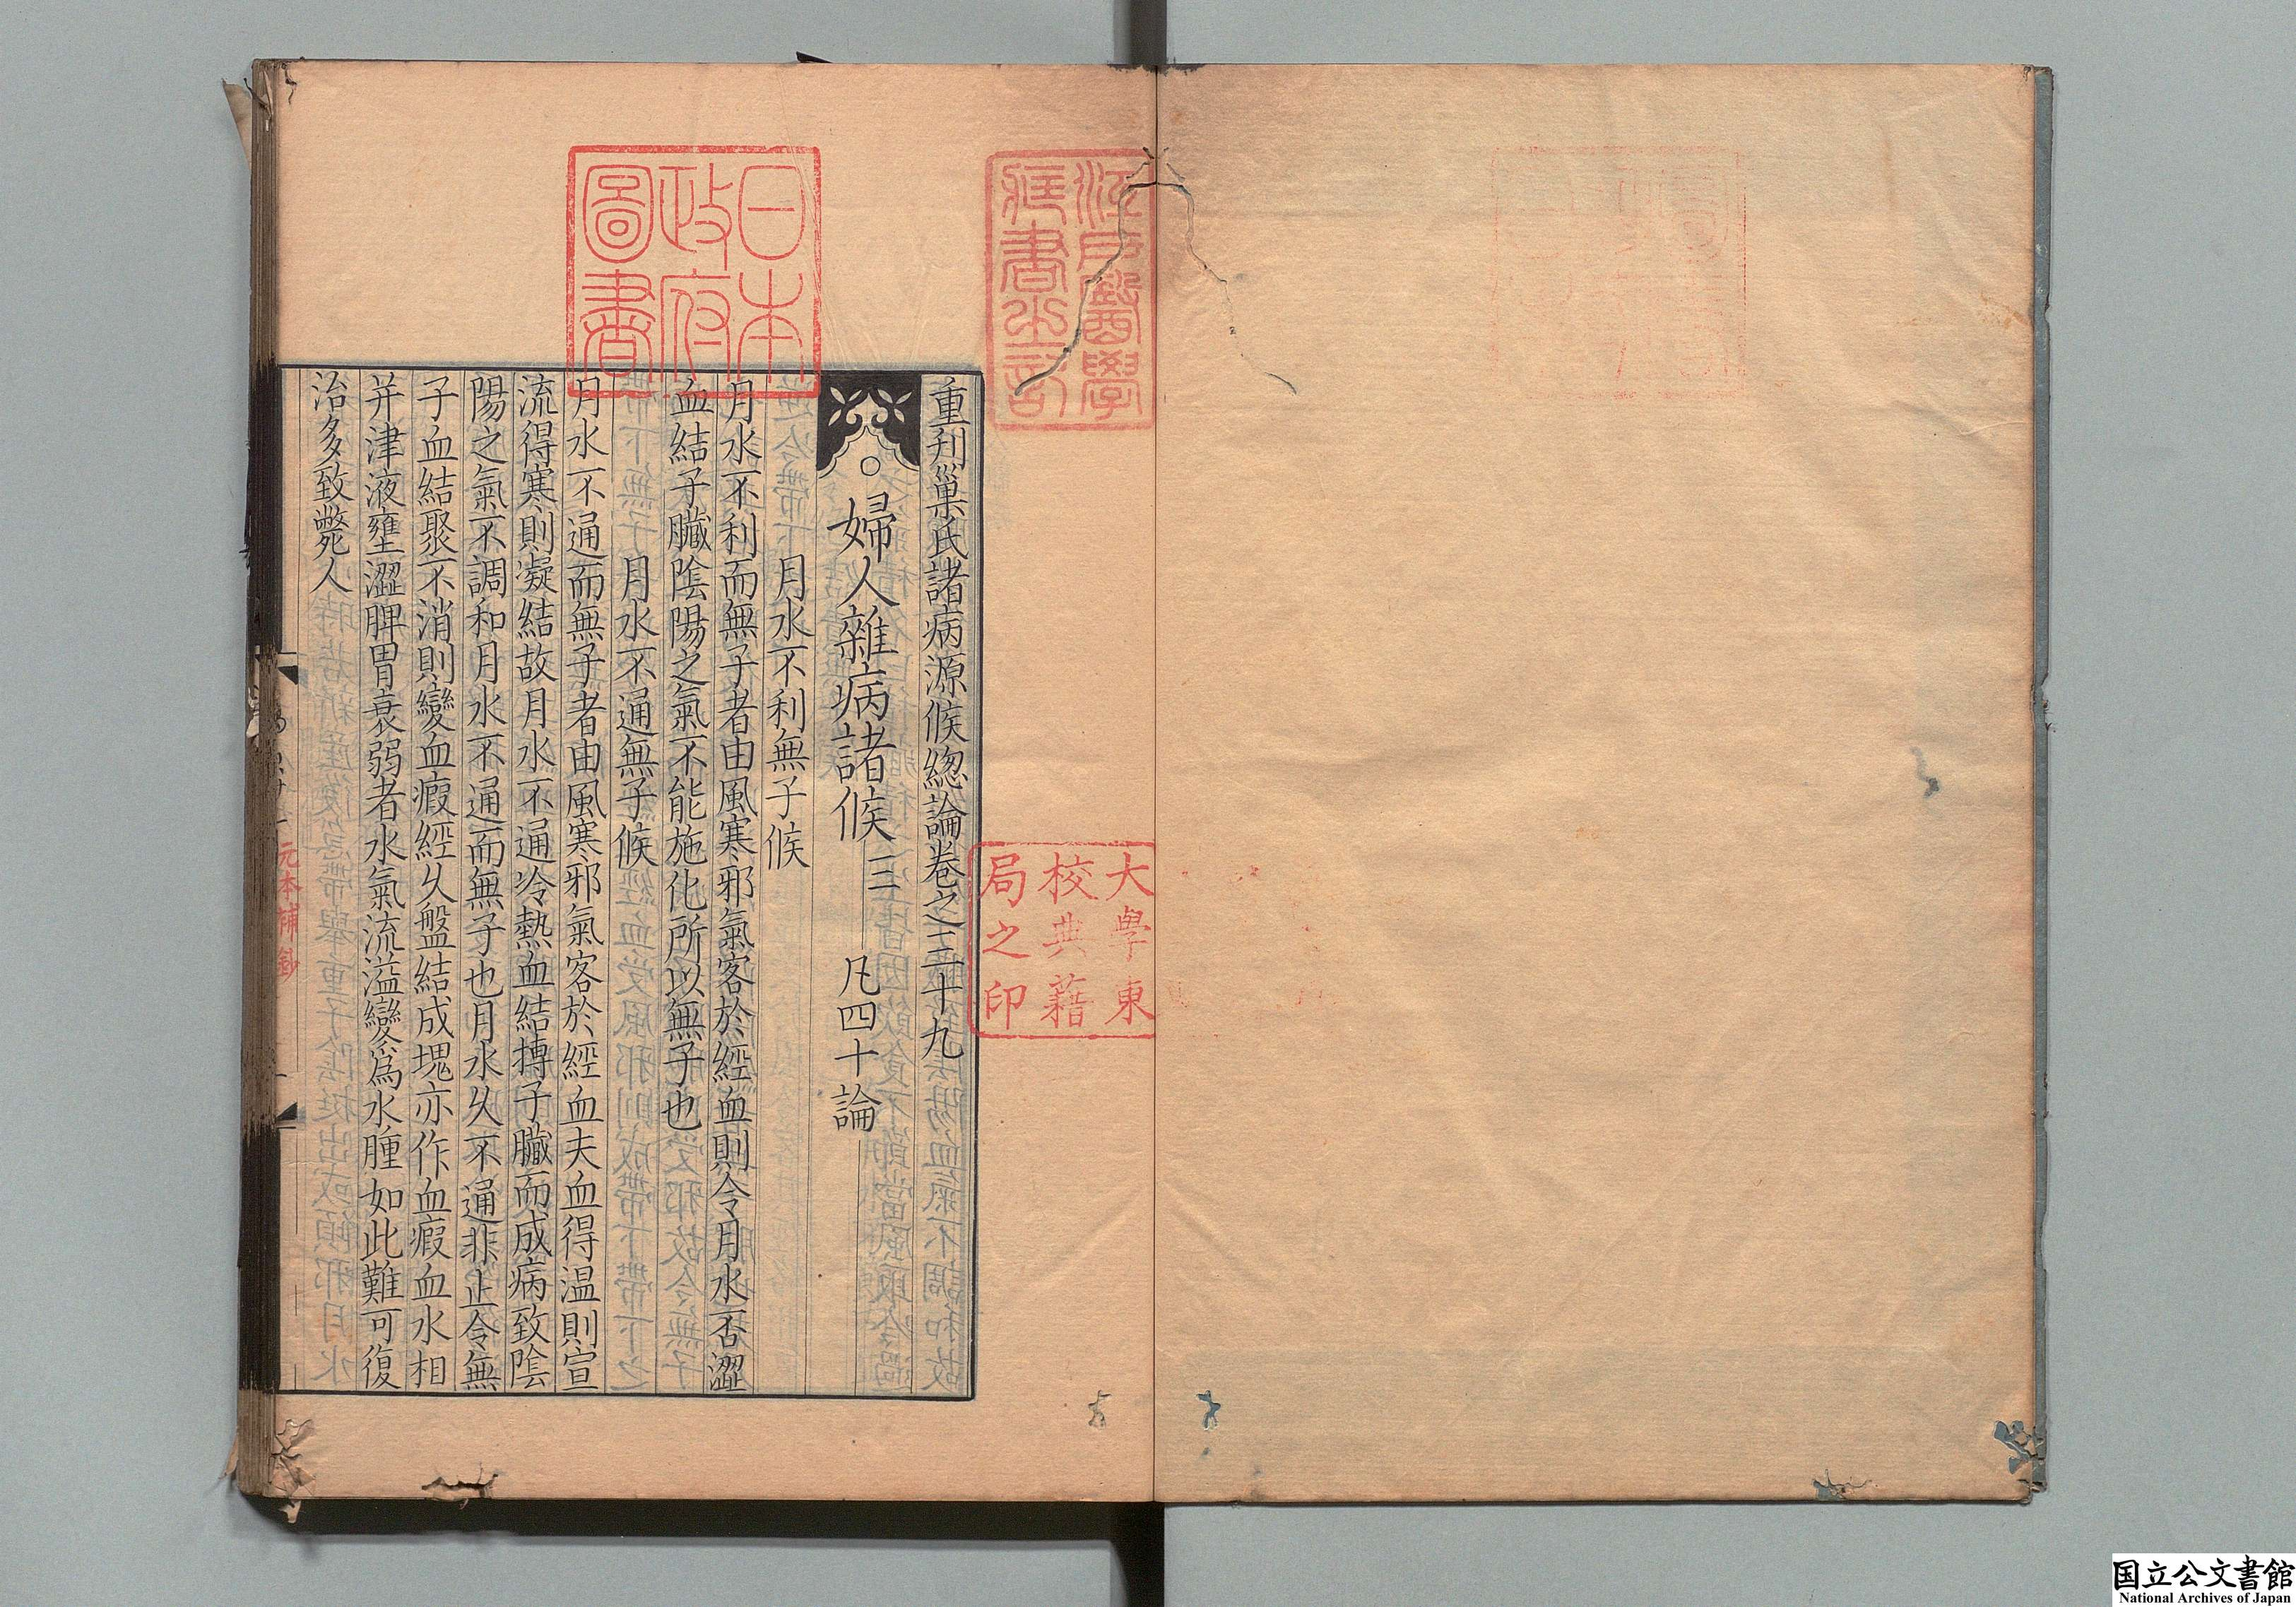 重刊巢氏諸病源候總論卷之三十九
○婦人雜病諸候三 凡四十論
月水不利無子候
月水不利而無子者由風寒邪氣客於經血則令月水否澀
血結子臟陰陽之氣不能施化所以無子也
月水不通無子候
月水不通而無子者由風寒邪氣客於經血夫血得温則宣
流得寒則凝結故月水不通冷熱血結摶子臟而成病致陰
陽之氣不調和月水不通而無子也月水久不通非止令無
子血結聚不消則變血瘕經久盤結成塊亦作血瘕血水相
并津液壅澀脾胃衰弱者水氣流溢變爲水腫如此難可復
治多致斃人
元本補鈔
日本
政府
圖書
江戶醫學
藏書之記
大學東
校典籍
局之印
国立公文書館
National Archives of Japan